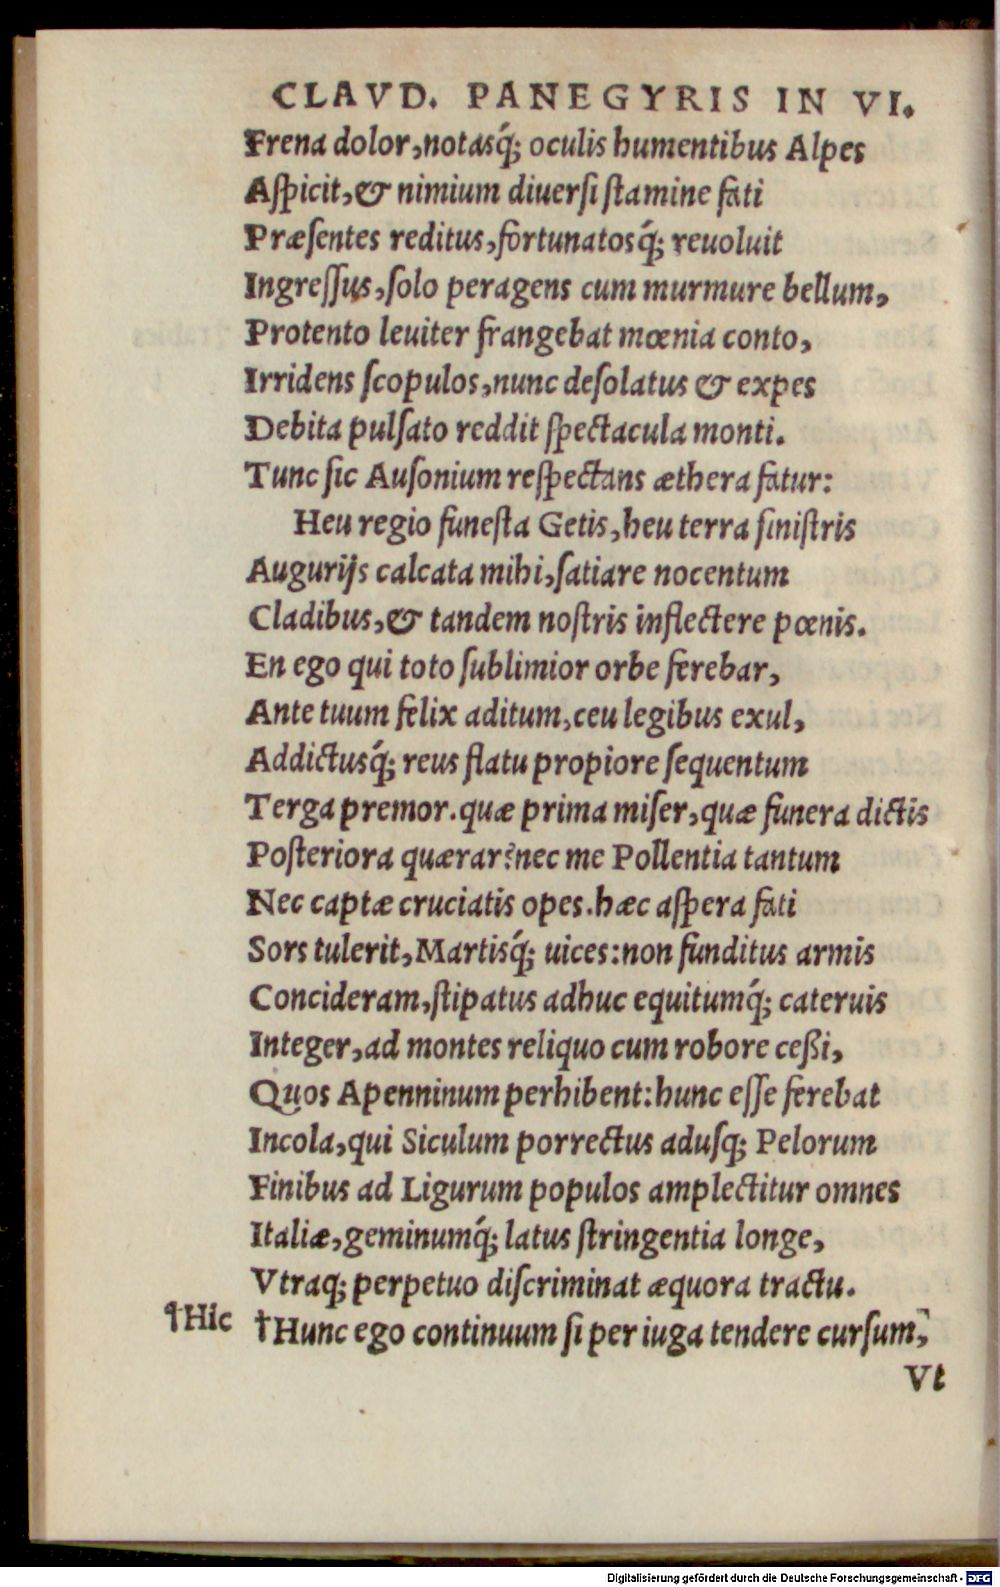 CLAVD. PANEGYRIS IN VI.
Frena dolor, notasq́; oculis humentibus Alpes
Aſpicit, & nimium diuerſi ſtamine fati
Præſentes reditus, fortunatosq́; reuoluit
Ingreſſus, ſolo peragens cum murmure bellum,
Protento leuiter frangebat mœnia conto,
Irridens ſcopulos, nunc deſolatus & expes
Debita pulſato reddit ſpectacula monti.
Tunc ſic Auſonium reſpectans æthera fatur:
Heu regio funeſta Getis, heu terra ſiniſtris
Augurijs calcata mihi, ſatiare nocentum
Cladibus, & tandem noſtris inflectere pœnis.
En ego qui toto ſublimior orbe ferebar,
Ante tuum felix aditum, ceu legibus exul,
Addictusq́; reus flatu propiore ſequentum
Terga premor. quæ prima miſer, quæ funera dictis
Poſteriora quærar? nec me Pollentia tantum
Nec captæ cruciatis opes. hæc aſpera fati
Sors tulerit, Martisq́; uices: non funditus armis
Concideram, ſtipatus adhuc equitumq́; cateruis
Integer, ad montes reliquo cum robore ceßi,
Quos Apenninum perhibent: hunc eſſe ferebat
Incola, qui Siculum porrectus aduſq; Pelorum
Finibus ad Ligurum populos amplectitur omnes
Italiæ, geminumq́; latus ſtringentia longe,
Vtraq; perpetuo diſcriminat æquora tractu.
†Hic †Hunc ego continuum ſi per iuga tendere curſum,
Vt
Digitalisierung gefördert durch die Deutsche Forschungsgemeinschaft - DFG